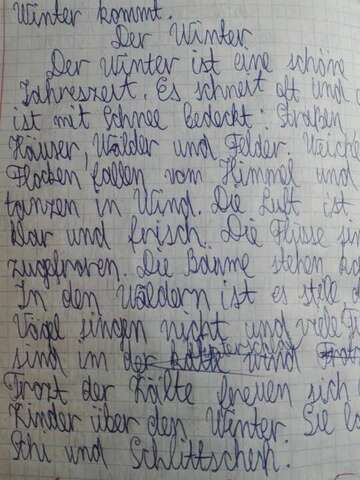 Winter kommt.
Der Winter
Der Winter ist eine schöne
Jahreszeit. Es schneit oft und
ist mit Schnee bedeckt: Straßen
Häuser, Wälder und Felder. Weiche
Flocken fallen vom Himmel und
tanzen in Wind. Die Luft ist
klar und frisch. Die Flüsse
zugefroren. Die Bäume stehen
In den Wäldern ist es still
Vögel singen nicht und viele
sind im Winterschlaf
Trozt der Kälte freuen sich
Kinder über den Winter. Sie
Schi und Schlittschuh.